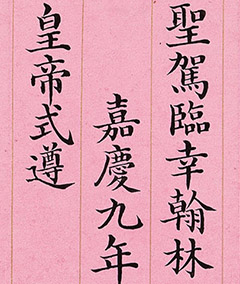 聖駕臨幸翰林
嘉慶九年
皇帝式遵